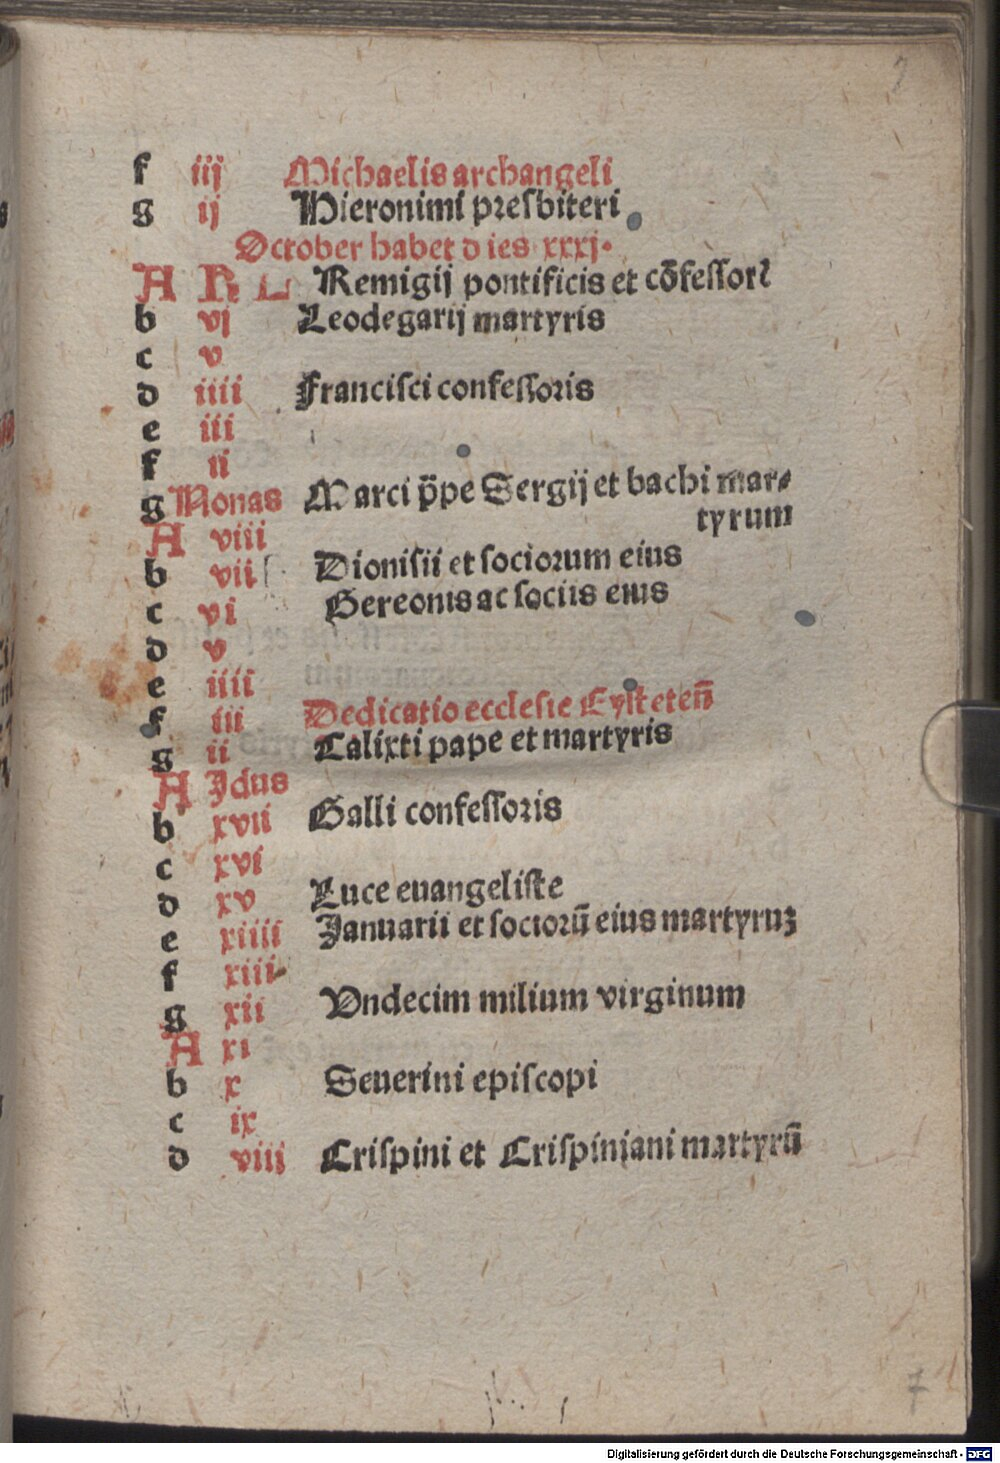 f iij Michaelis archangeli
g ij Hieronimi preſbiteri
October habet dies xxxj.
A K L Remigij pontificis et cōfeſſorꝭ
b vj Leodegarij martyris
c v
d iiii Franciſci confeſſoris
e iii
f ii
g Nonas Marci p̄pe Sergij et bachi mar⸗
tyrum
A viii
b vii Dioniſii et ſociorum eius
c vi Gereonis ac ſociis eius
d v
e iiii
f iii Dedicatio eccleſie Eyſteten̄
g ii Calixti pape et martyris
A Idus
b xvii Galli confeſſoris
c xvi
d xv Luce euangeliſte
e xiiii Januarii et ſociorū eius martyruꝫ
f xiii
g xii Vndecim milium virginum
A xi
b x Seuerini epiſcopi
c ix
d viii Criſpini et Criſpiniani martyrū
7
Digitalisierung gefördert durch die Deutsche Forschungsgemeinschaft - DFG